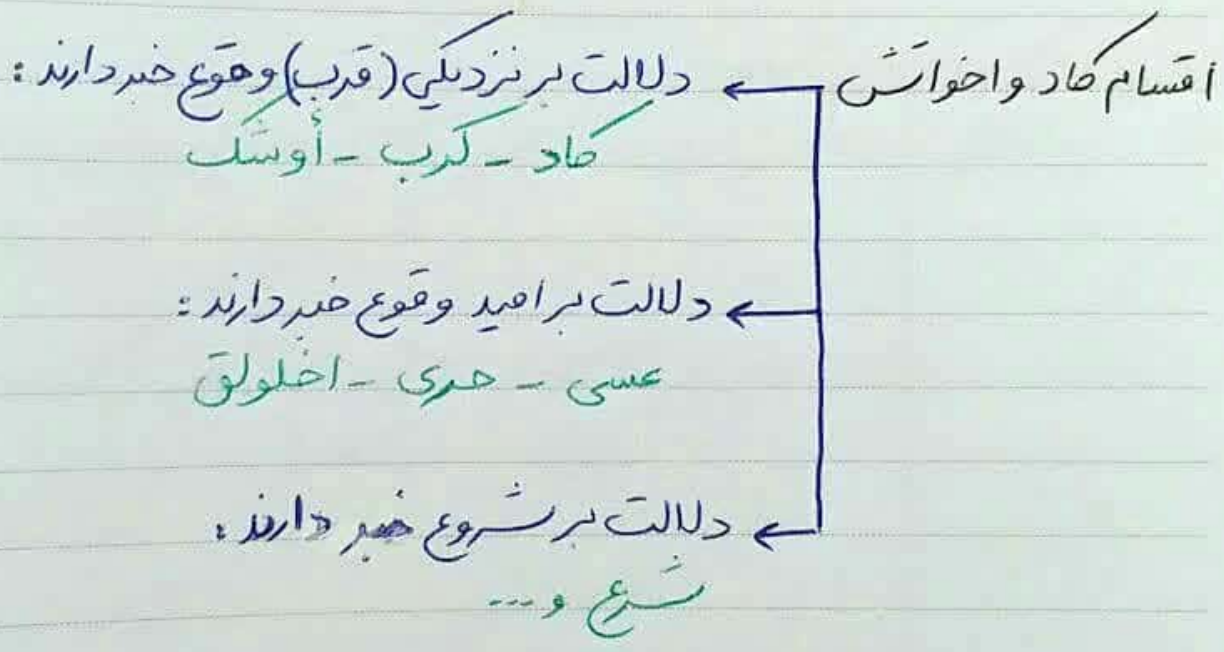 اقسام کاد و اخواتش
دلالت بر نزدیکی (قرب) وقوع خبر دارند :
کاد - کرب - أوشک
دلالت بر امید وقوع خبر دارند :
عسی - حری - اخلولق
دلالت بر شروع خبر دارند :
شرع و ...